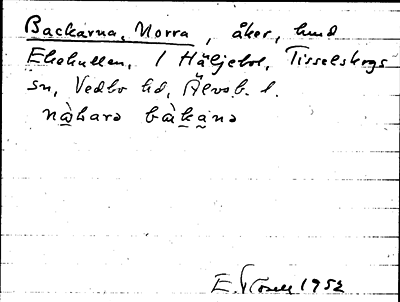 Backarna, Norra, åker, hund
Ekekullen, 1 Häljebol, Tisselskogs
sn, Vedbo hd, Älvsb. l.
nàhara bàkana
E. 1952